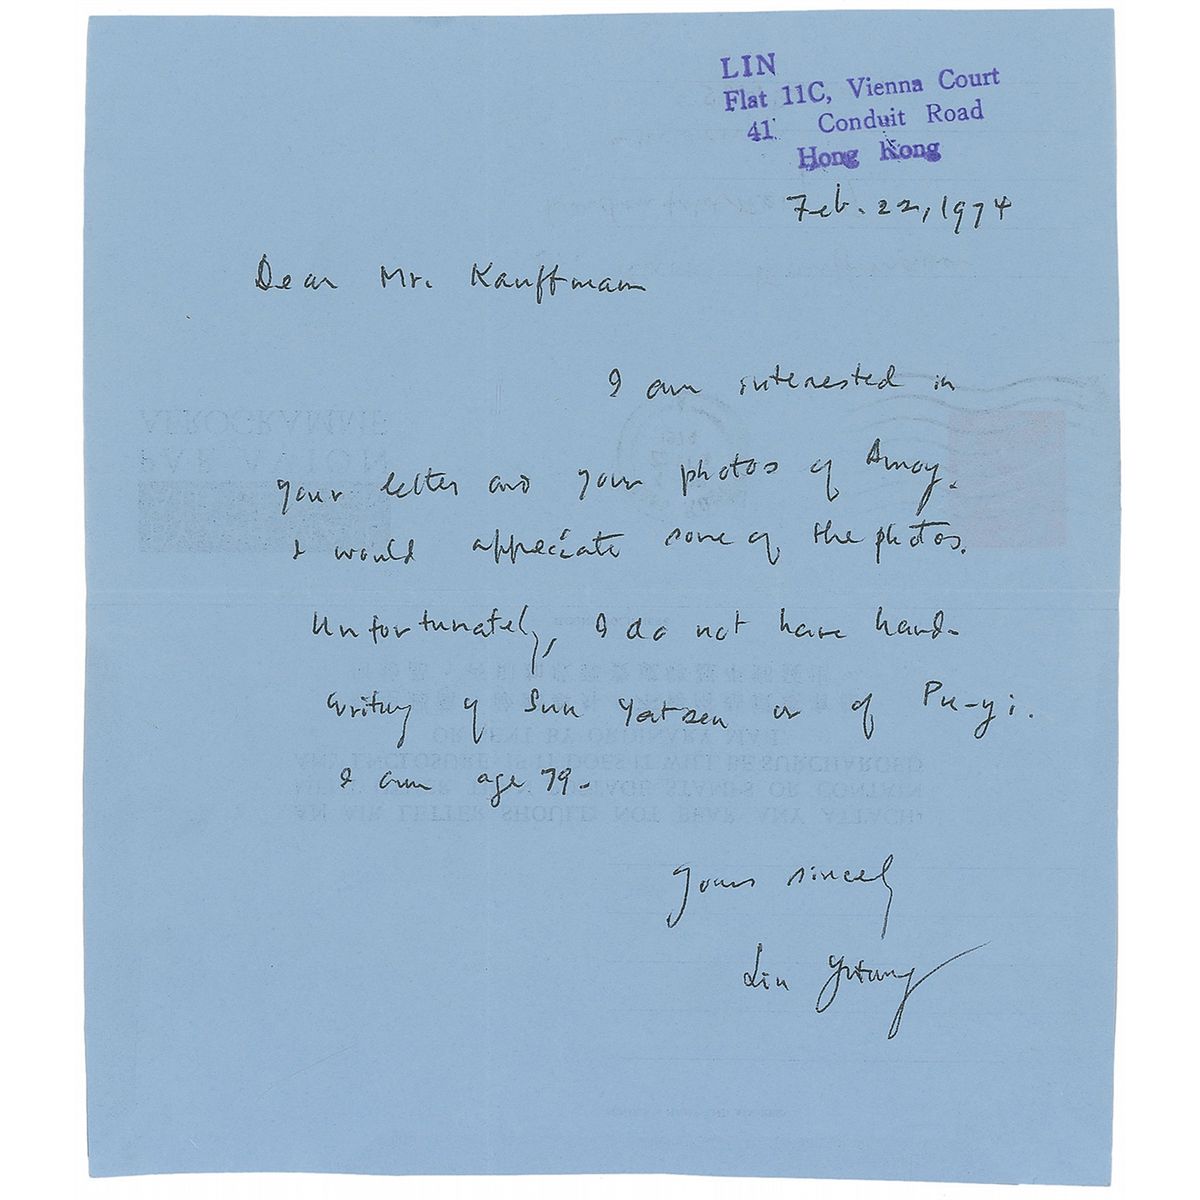 LIN
Flat 11C, Vienna Court
41 Conduit Road
Hong Kong
Feb. 22, 1974
Dear Mr. Kauffmann
I am interested in
your letter and your photos of Amoy.
I would appreciate some of the photos.
Unfortunately, I do not have hand-
writing of Sun Yatsen or of Pu-yi.
I am age 79.
Yours sincely
Lin Yutang